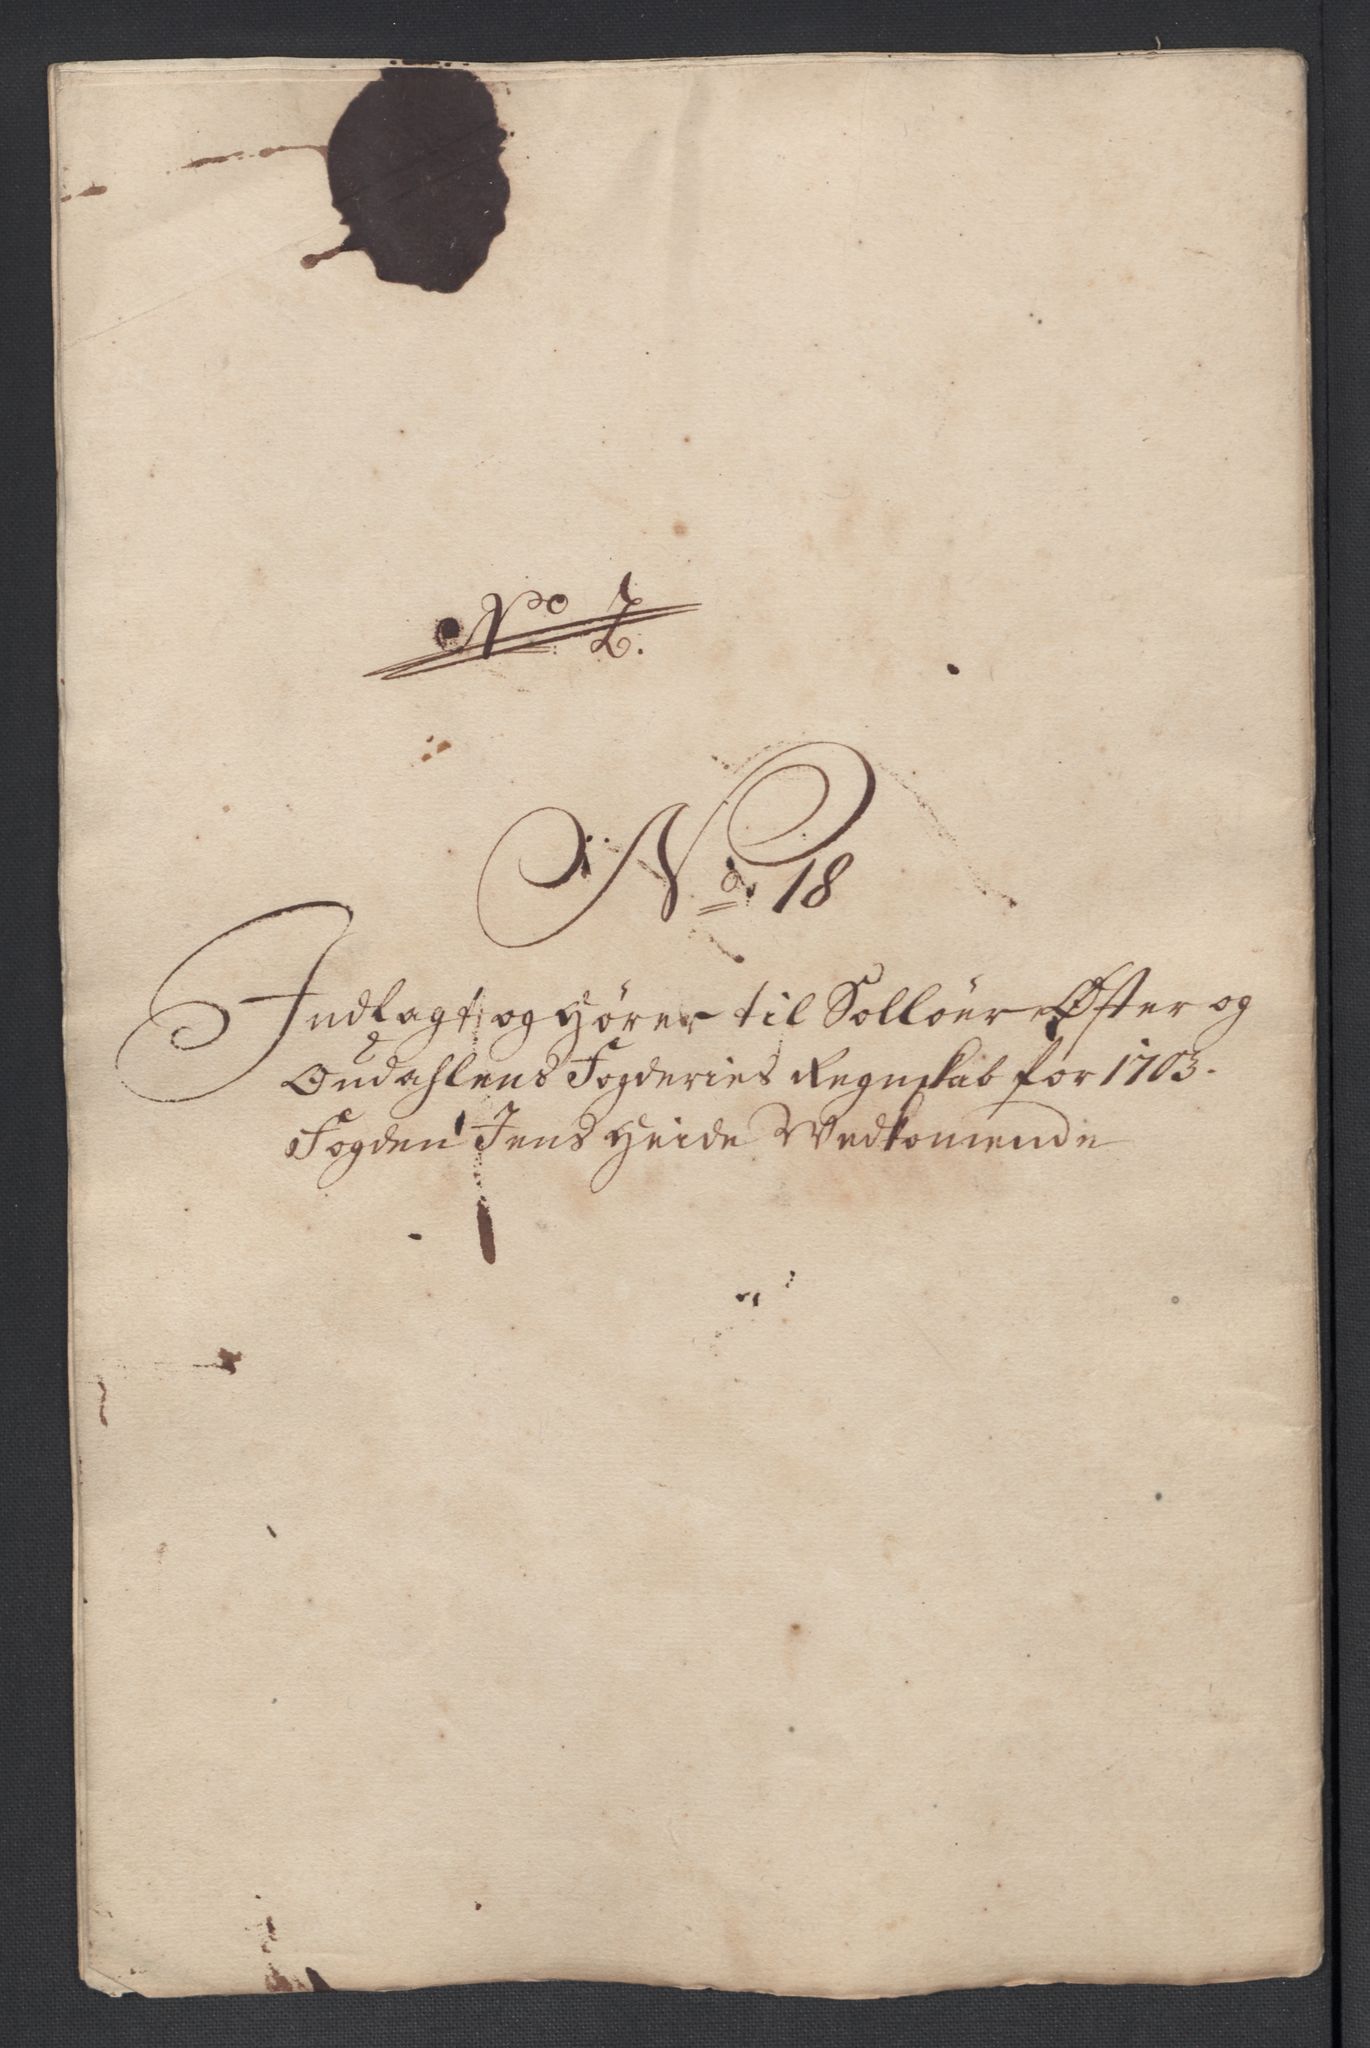 No 2.
No 18
Indlagt og Hører til Solløer Øster og
Oudahlens Fogderies Regnskab for 1703.
Fogden Jens Heide Vedkomende